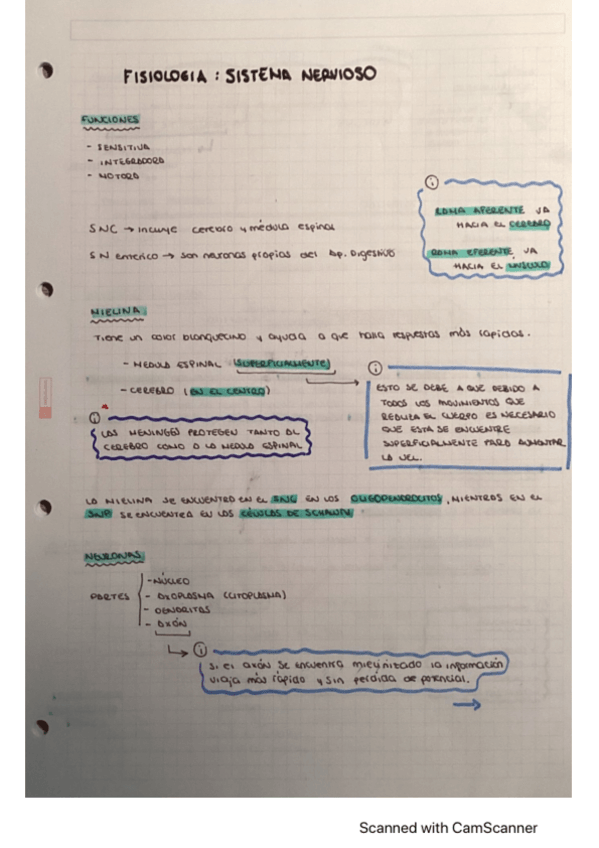 FISIOLOGIA : SISTEMA NERVIOSO
FUNCIONES
- SENSITIVA
- INTEGRADORA
- MOTORA
RAMA AFERENTE VA
HACIA EL CEREBRO
SNC → incluye cerebro y médula espinal
RAMA EFERENTE VA
HACIA EL MÚSCULO
SN Enterico → son neuronas propias del Ap. Digestivo
MIELINA:
Tiene un color blanquecino y ayuda a que halla respuestas más rapidas.
- MEDULA ESPINAL (SUPERFICIALMENTE)
- CEREBRO (EN EL CENTRO)
ESTO SE DEBE A QUE DEBIDO A
TODOS LOS MOVIMIENTOS QUE
REGULA EL CUERPO ES NECESARIO
QUE ESTA SE ENCUENTRE
SUPERFICIALMENTE PARA AUMENTAR
LA VEL.
LAS MENINGES PROTEGEN TANTO AL
CEREBRO COMO A LA MEDULA ESPINAL
LA MIELINA SE ENCUENTRA EN EL SNC EN LOS OLIGODENDROCITOS, MIENTRAS EN EL
SNP SE ENCUENTRA EN LAS CÉLULAS DE SCHAWN
NEURONAS
PARTES
- NÚCLEO
- AXOPLASMA (CITOPLASMA)
- DENDRITAS
- AXÓN
Si el axón se encuentra mielinizado la información
viaja más rápido y sin perdida de potencial.
Scanned with CamScanner